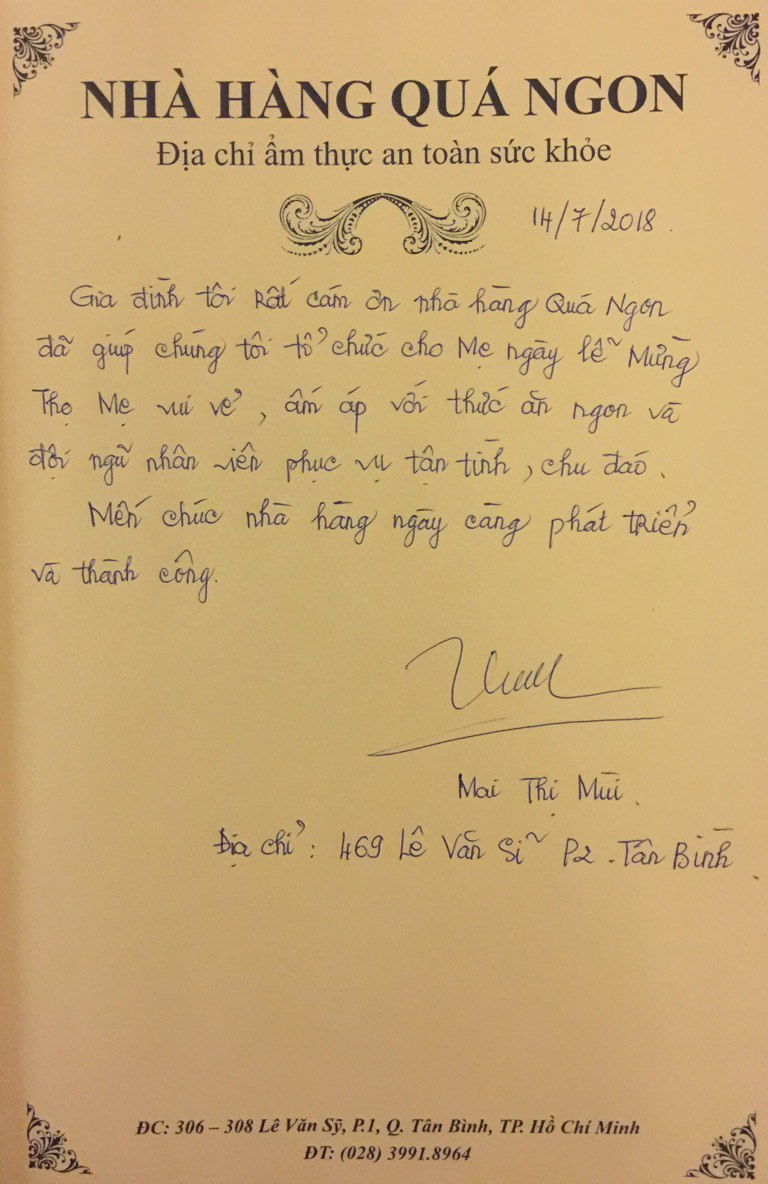 NHÀ HÀNG QUÁ NGON
Địa chỉ ẩm thực an toàn sức khỏe
14/7/2018.
Gia đình tôi Rất cám ơn nhà hàng Quá Ngon
đã giúp chúng tôi tổ chức cho Mẹ ngày lễ Mừng
Thọ Mẹ vui vẻ, ấm áp với thức ăn ngon và
đội ngũ nhân viên phục vụ tận tình, chu đáo.
Mến chúc nhà hàng ngày càng phát TRiển
và thành công.
Mai Thị Mùi.
Địa chỉ: 469 Lê Văn Sĩ P2. Tân Bình
ĐC: 306 – 308 Lê Văn Sỹ, P.1, Q. Tân Bình, TP. Hồ Chí Minh
ĐT: (028) 3991.8964